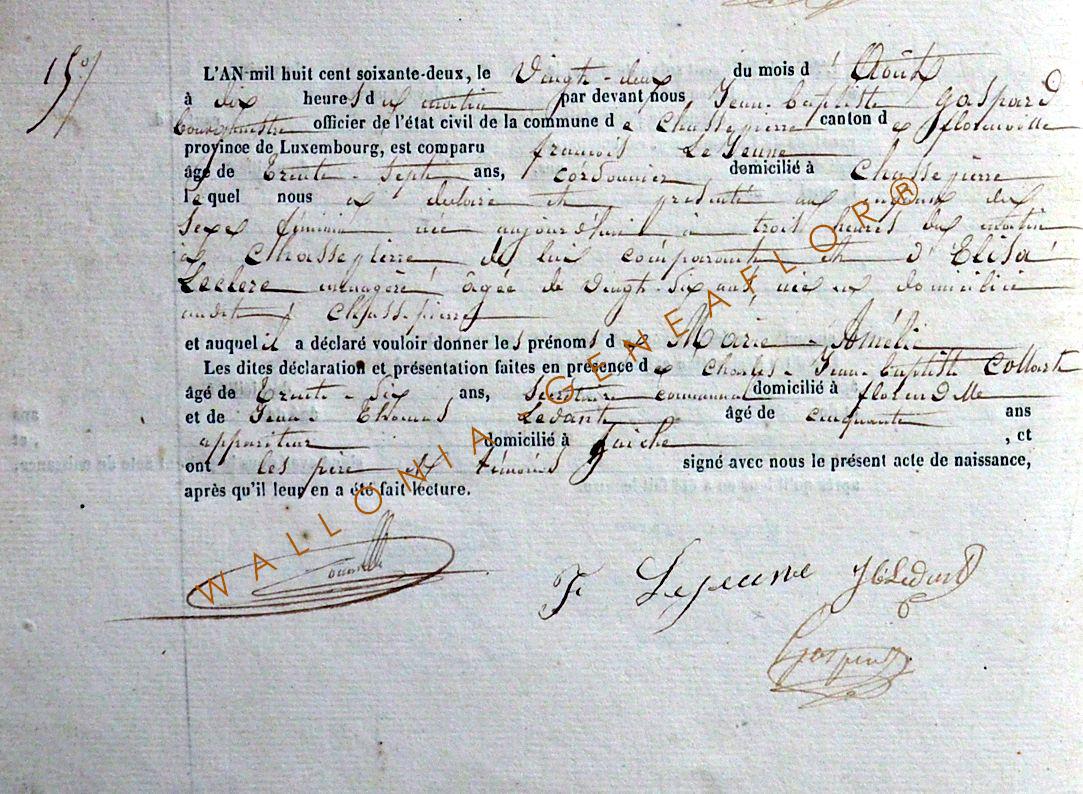 15
L'AN mil huit cent soixante-deux, le Vingt-deux du mois d'Août
à dix heures du matin par devant nous Jean-baptiste gaspard
bourgmestre officier de l'état civil de la commune de Chassepierre canton de florenville
province de Luxembourg, est comparu francois LeJeune
âgé de Trente-Sept ans, cordonnier domicilié à Chassepierre
lequel nous a déclaré et présenté un enfant du
sexe féminin née aujourd'hui à trois heures du matin
à Chassepierre de lui comparant et d'Elisa
Leclere menagère âgée de vingt-Six ans née et domiciliée
audit Chassepierre
et auquel il a déclaré vouloir donner les prénoms de Marie-Amélie
Les dites déclaration et présentation faites en présence de Charles-Jean-baptiste Collart
âgé de Trente-Six ans, Secrétaire communal domicilié à florenville
et de Jean Thomas Ledant âgé de cinquante ans
appariteur domicilié à Laiche , et
ont les père et témoins signé avec nous le présent acte de naissance,
après qu'il leur en a été fait lecture.
F Lejeune JTLedant
Gaspard
WALLONIA - GENEAFLOR®